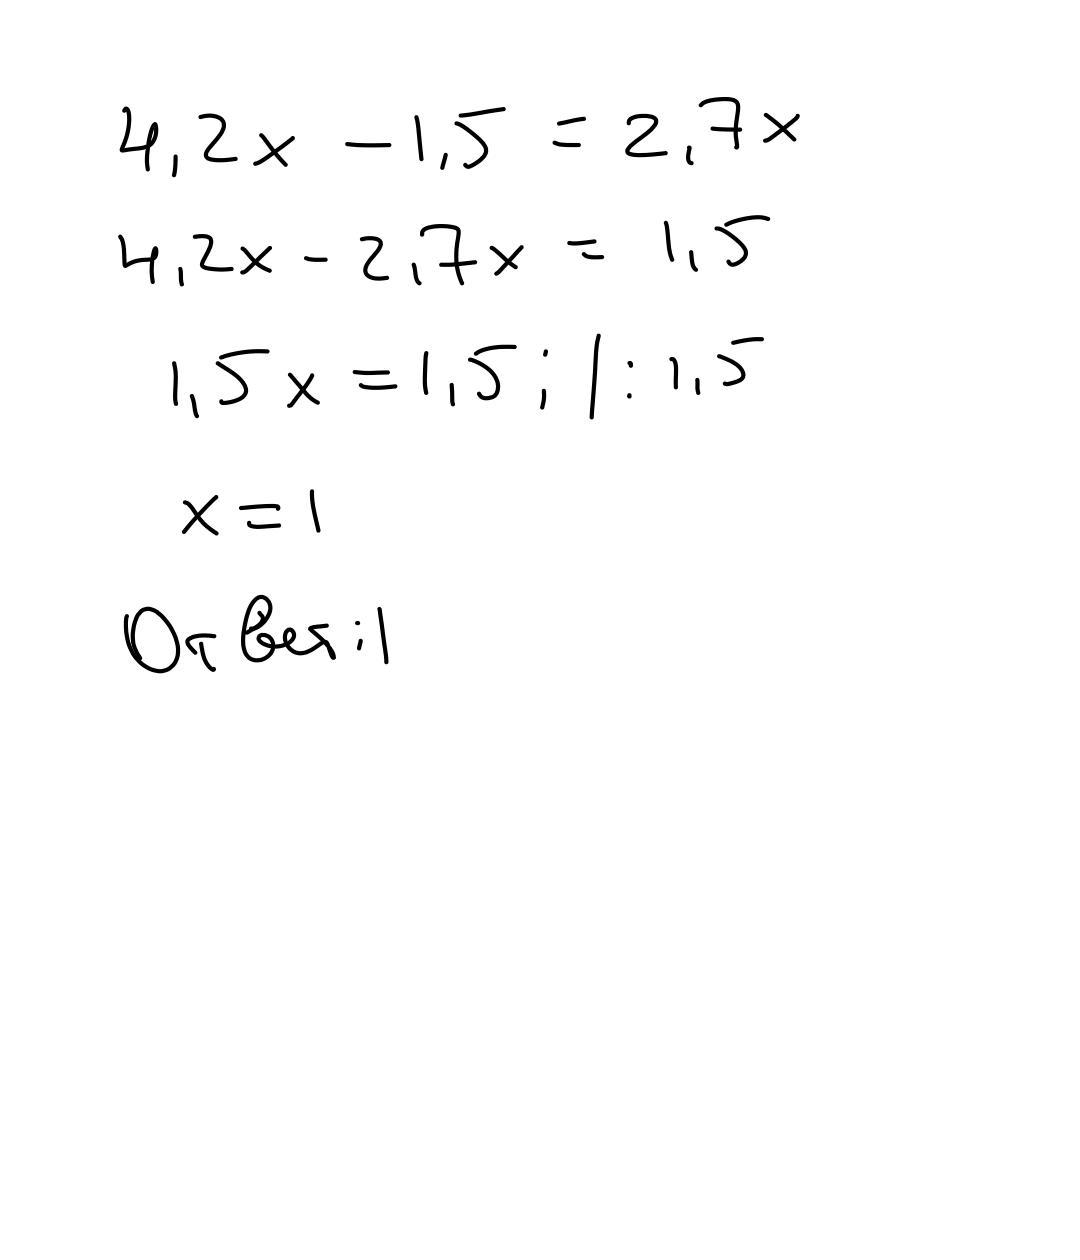 4,2x - 1,5 = 2,7x
4,2x - 2,7x = 1,5
1,5x = 1,5; | : 1,5
x = 1
Ответ: 1